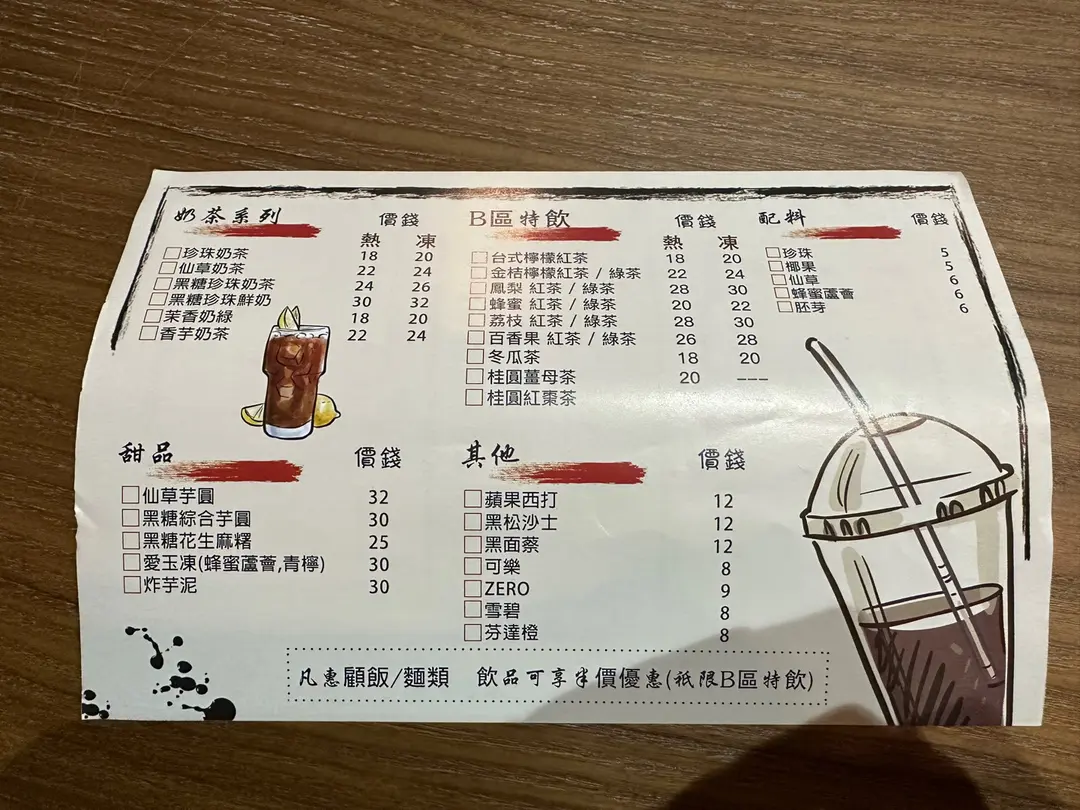 奶茶系列 價錢
熱 凍
□珍珠奶茶 18 20
□仙草奶茶 22 24
□黑糖珍珠奶茶 24 26
□黑糖珍珠鮮奶 30 32
□茉香奶綠 18 20
□香芋奶茶 22 24
B區特飲 價錢
熱 凍
□台式檸檬紅茶 18 20
□金桔檸檬紅茶 / 綠茶 22 24
□鳳梨 紅茶 / 綠茶 28 30
□蜂蜜 紅茶 / 綠茶 20 22
□荔枝 紅茶 / 綠茶 28 30
□百香果 紅茶 / 綠茶 26 28
□冬瓜茶 18 20
□桂圓薑母茶 20 ---
□桂圓紅棗茶
配料 價錢
□珍珠 5
□椰果 5
□仙草 6
□蜂蜜蘆薈 6
□胚芽 6
甜品 價錢
□仙草芋圓 32
□黑糖綜合芋圓 30
□黑糖花生麻糬 25
□愛玉凍(蜂蜜蘆薈,青檸) 30
□炸芋泥 30
其他 價錢
□蘋果西打 12
□黑松沙士 12
□黑面蔡 12
□可樂 8
□ZERO 9
□雪碧 8
□芬達橙 8
凡惠顧飯/麵類 飲品可享半價優惠(祇限B區特飲)